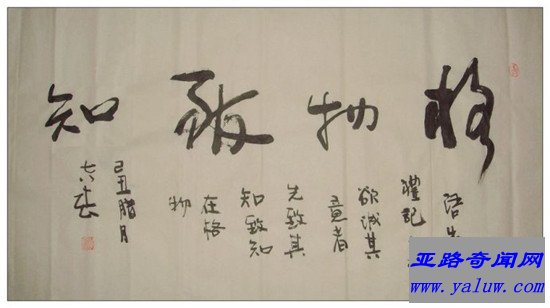 格物致知
禮記
欲诚其
意者
先致其
知致知
在格
物
己丑腊月
亚路奇闻网
www.yaluw.com